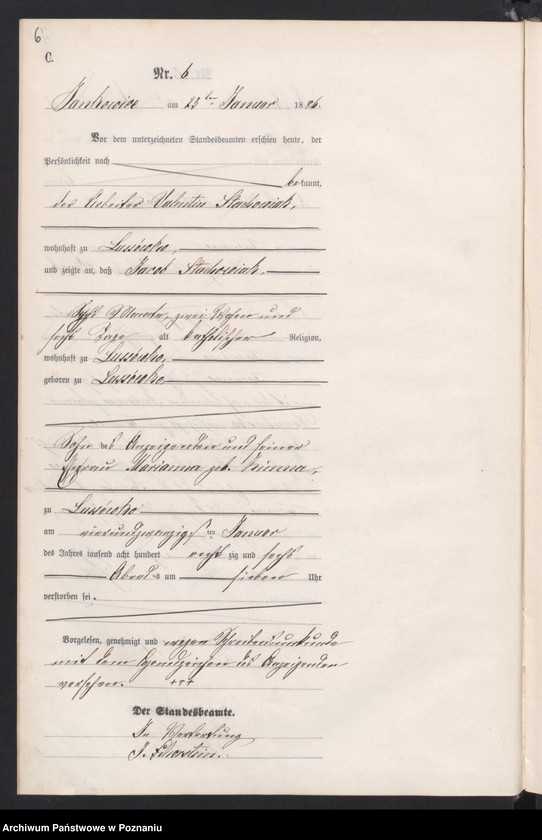 6
C.
Nr. 6
Jankowice am 25ten Januar 1886.
Vor dem unterzeichneten Standesbeamten erschien heute, der
Persönlichkeit nach
bekannt,
der Arbeiter Valentin Stachowiak,
wohnhaft zu Lussówko,
und zeigte an, daß Jacob Stachowiak,
acht Monate, zwei Wochen und
sechs Tage alt katholischer Religion,
wohnhaft zu Lussówko,
geboren zu Lussówko
Sohn des Anzeigenden und seiner
Ehefrau Marianna geb.
zu Lussówko
am vierundzwanzigsten Januar
des Jahres tausend acht hundert achtzig und sechs
Abends um sieben Uhr
verstorben sei.
Vorgelesen, genehmigt und wegen Schreibensunkunde
mit dem Handzeichen des Anzeigenden
versehen. +++
Der Standesbeamte.
In Vertretung
Archiwum Państwowe w Poznaniu